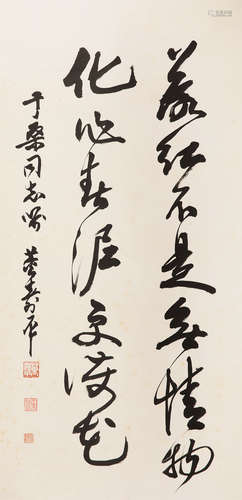 落红不是无情物
化作春泥更護花
于桑同志嘱 董寿平